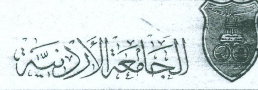 الجامعة الأردنية